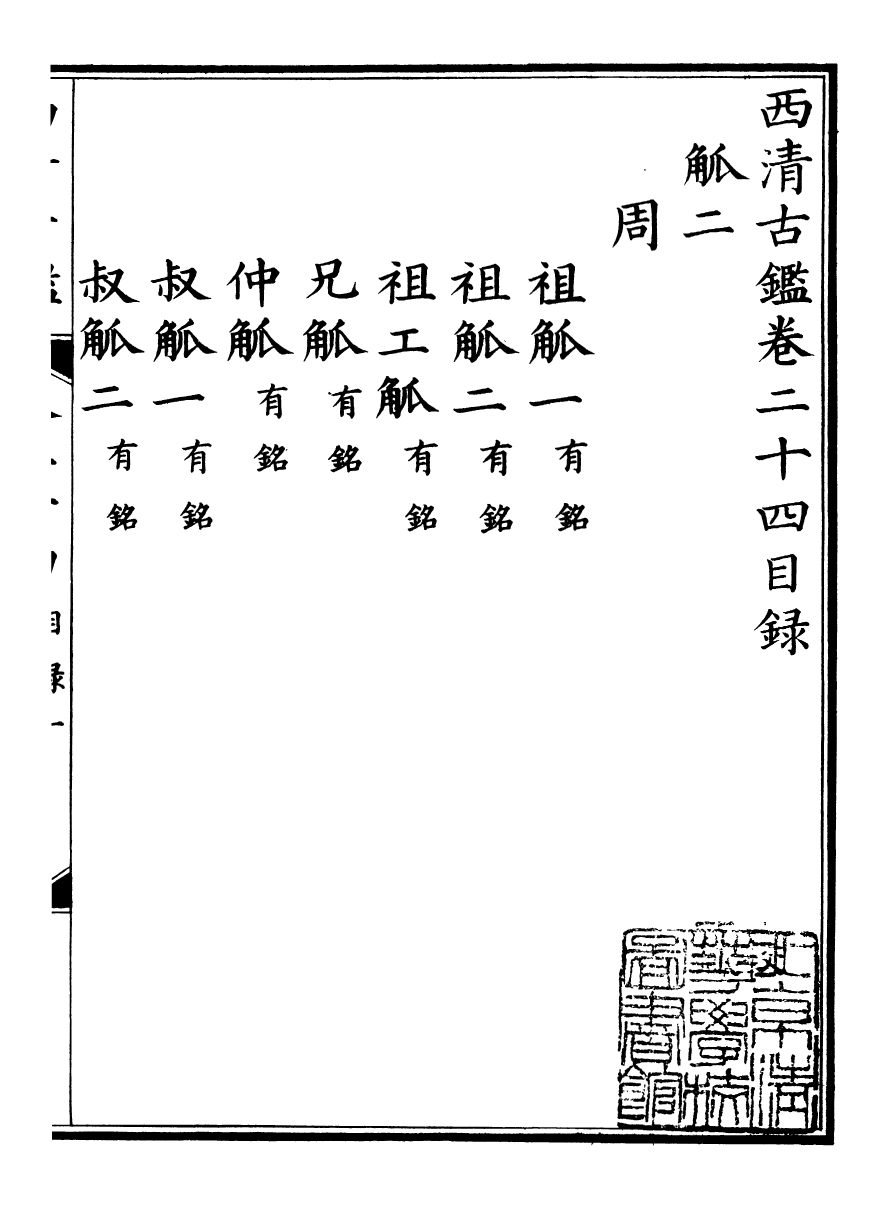 西清古鑑卷二十四目録
觚二
周
祖觚一有銘
祖觚二有銘
祖工觚有銘
兄觚有銘
仲觚有銘
叔觚一有銘
叔觚二有銘
目録一